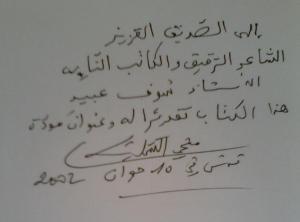 إلى الصديق العزيز
الشاعر الرقيق والكاتب النابه
الأستاذ سوف عبيد
هذا الكتاب تقديرا له وعنوان مودة
تونس في 10 جوان 2002